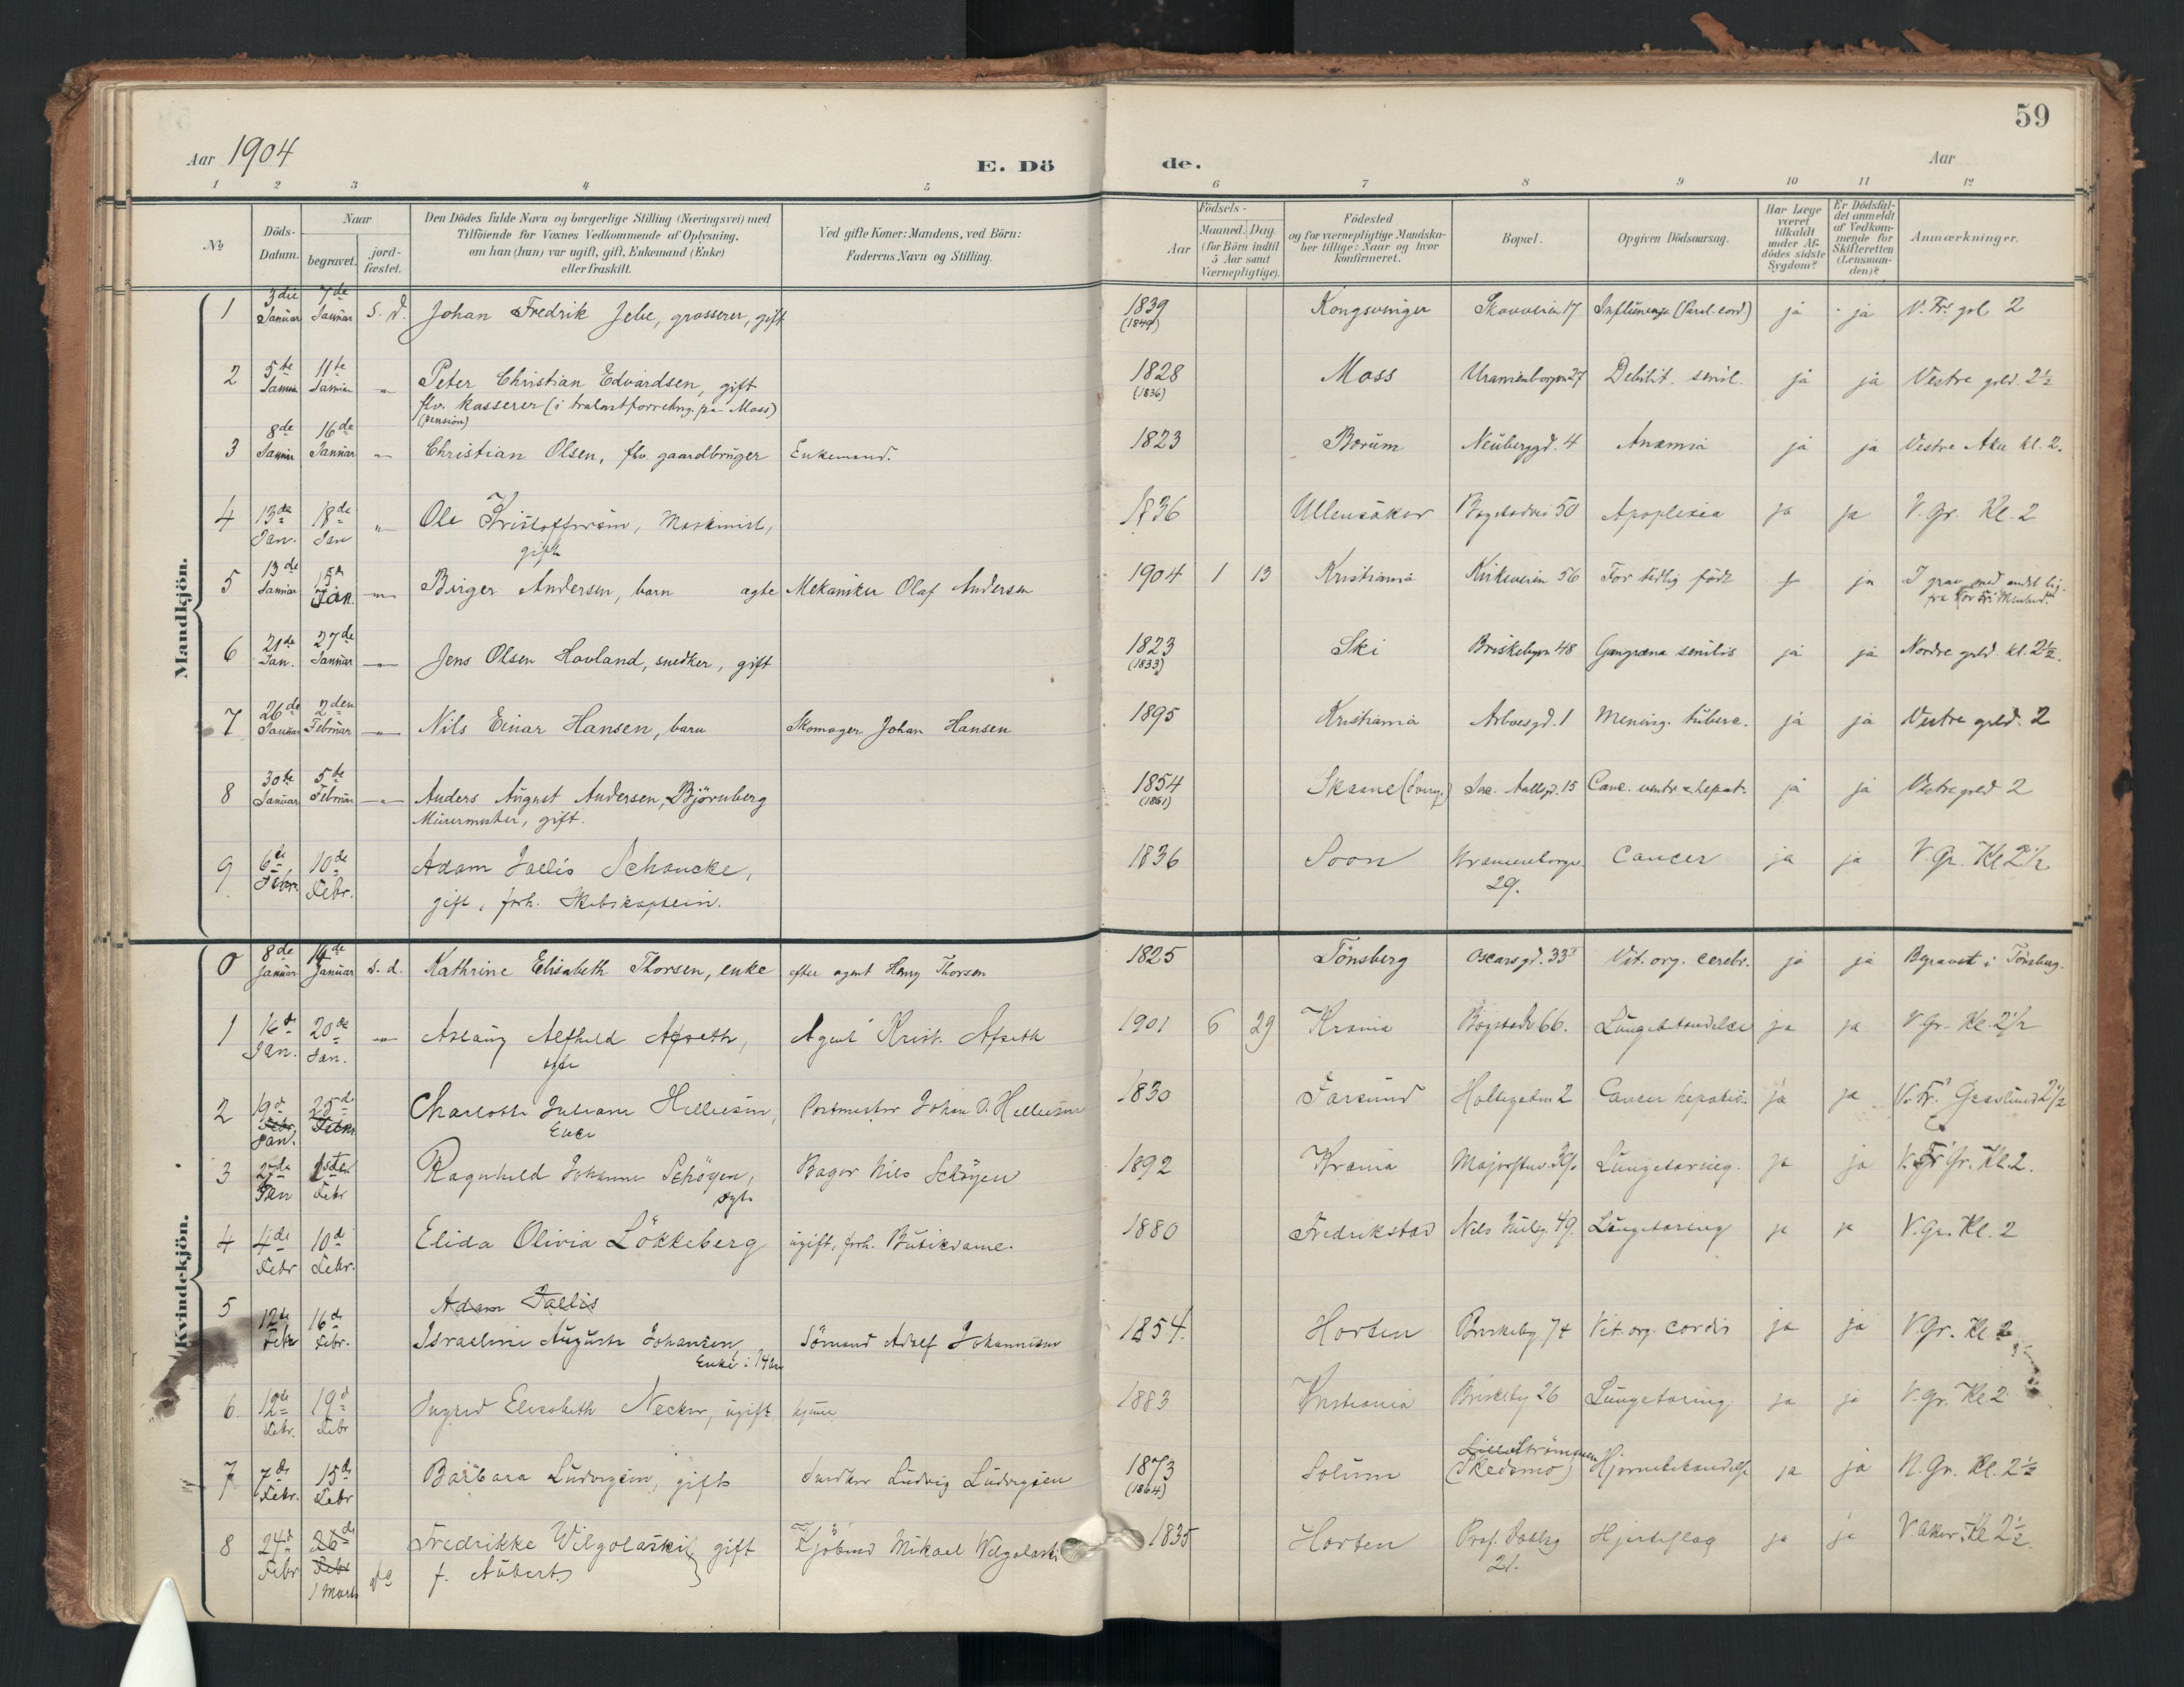 59
Aar 1904
E. Dö de.
Aar
1 2 3 4 5 6 7 8 9 10 11 12
№
Döds-Datum.
Naar
begravet.
jord-fæstet.
Den Dödes fulde Navn og borgerlige Stilling (Næringsvei) med
Tilföiende for Voxnes Vedkommende af Oplysning,
om han (hun) var ugift, gift, Enkemand (Enke)
eller fraskilt.
Ved gifte Koner: Mandens, ved Börn:
Faderens Navn og Stilling.
Födsels-
Aar
Maaned. Dag.
(for Börn indtil
5 Aar samt
Værnepligtige).
Födested
og for værnepligtige Mandska-
ber tillige: Naar og hvor
konfirmeret.
Bopæl.
Opgiven Dödsaarsag.
Har Læge
været
tilkaldt
under Af-
dödes sidste
Sygdom?
Er Dödsfal-
det anmeldt
af Vedkom-
mende for
Skifteretten
(Lensman-
den)?
Anmærkninger.
Mandkjön.
1 3die Januar 7de Januar s. d. Johan Fredrik Jebe, grosserer, gift 1839 Kongsvinger Skovveien 17 Influenza (Paral. cord.) ja ja V. Fr. grl. 2
2 5te Januar 11te Januar " Peter Christian Edvardsen, gift 1828 Moss Uranienborgvn 27 Debilit. senil. ja ja Vestre grld. 2½
(1836)
flv. kasserer (i trælastforretng. paa Moss)
(pension)
3 8de Januar 16de Januar " Christian Olsen, flv. gaardbruger Enkemand. 1823 Bærum Neuberggd. 4 Anæmia ja ja Vestre Aker kl. 2.
4 13de Jan. 18de Jan " Ole Kristoffersen, Maskinist, 1836 Ullensaker Bogstadvei 50 Apoplexia ja ja V. Gr. Kl. 2
gift
5 13de Januar Jan. " Birger Andersen, barn ægte Mekaniker Olaf Andersen 1904 1 13 Kristiania Kirkeveien 56 For tidlig född ja I grav med andet lig
6 21de Jan. 27de Januar " Jens Olsen Hovland, snedker, gift 1823 Ski Briskebyvn 48 Gangræna senilis ja ja Nordre grld. kl. 2½.
(1833)
7 26de Januar 2den Februar " Nils Einar Hansen, barn Skomager Johan Hansen 1895 Kristiania Arboesgd. 1 Mening. tuberc. ja ja Vestre grld. 2
8 30te Januar 5te Februar " Anders August Andersen, Björnberg 1854 Skaane (Sverg.) Jac. Aallsgd. 15 Canc. ventr. & hepat. ja ja Vestre grld 2
(1861)
Murermester, gift.
9 6te Febr. 10de Febr. Adam Schancke, 1836 Soon Uranienborgv. 29. Cancer ja ja V. Gr. Kl 2½
gift, forh. Skibskaptein.
Kvindekjön.
0 8de Januar 14de Januar s. d. Kathrine Elisabeth Thorsen, enke efter agent Henry Thorsen 1825 Tönsberg Oscarsgd. 33 Vit. org. cerebr. ja ja Begravet i Tönsberg.
1 Jan. 20de Jan. " Aslaug Alfhild Afseth, Agent Krist. Afseth 1901 6 29 Krania Bogstadv 66. Lungebetændelse ja ja V Gr. Kl. 2½
ægte
2 19d Febr. Jan. 25d Febr. Charlotte Juliane Helliesen, Postmester Johan A. Helliesen 1830 Farsund Holtegaten 2 Cancer hepatis. ja ja V. Fr. Gravlund 2½
Enke
3 27de Jan 1ste Febr Ragnhild Johanne Schöyen, Bager Nils Schöyen 1892 Krania Majorstuv. 39. Lungetæring. ja ja V. Gr. Kl. 2.
ægte
4 4de Febr 10d Febr. Elida Olivia Lökkeberg ugift, forh. Butikdame. 1880 Fredrikstad Nels Juelsg. 49. Lungetæring ja ja V. Gr. Kl. 2
5 Adam Fallis
12te Febr 16de Febr. Israeline Augusta Johansen Sömand Adolf Johannesen 1854. Horten Briskeby 74 Vit. org. cordis ja ja V Gr. Kl 2
Enke i 14 aar
6. 12te Febr. 19d Febr Ingrid Elisabeth Necker, ugift hjemme 1883 Kristiania Briskeby 26 Lungetæring ja ja V. Gr. Kl 2
7 7de Febr. 15de Febr Barbara Ludvigsen, gift Snedker Ludvig Ludvigsen 1873 Solum Lilleströmmen (Skedsmo) Hjernebetændelse ja ja N. Gr. Kl. 2½
(1864)
8 24d Febr 26de Febr 1 Marts Fredrikke Wilgolaski gift Kjöbmd Mikael Wilgolaski 1835 Horten Prof. Dahlsg 21. Hjerteslag ja ja V. Aker Kl 2½.
f. Aubert